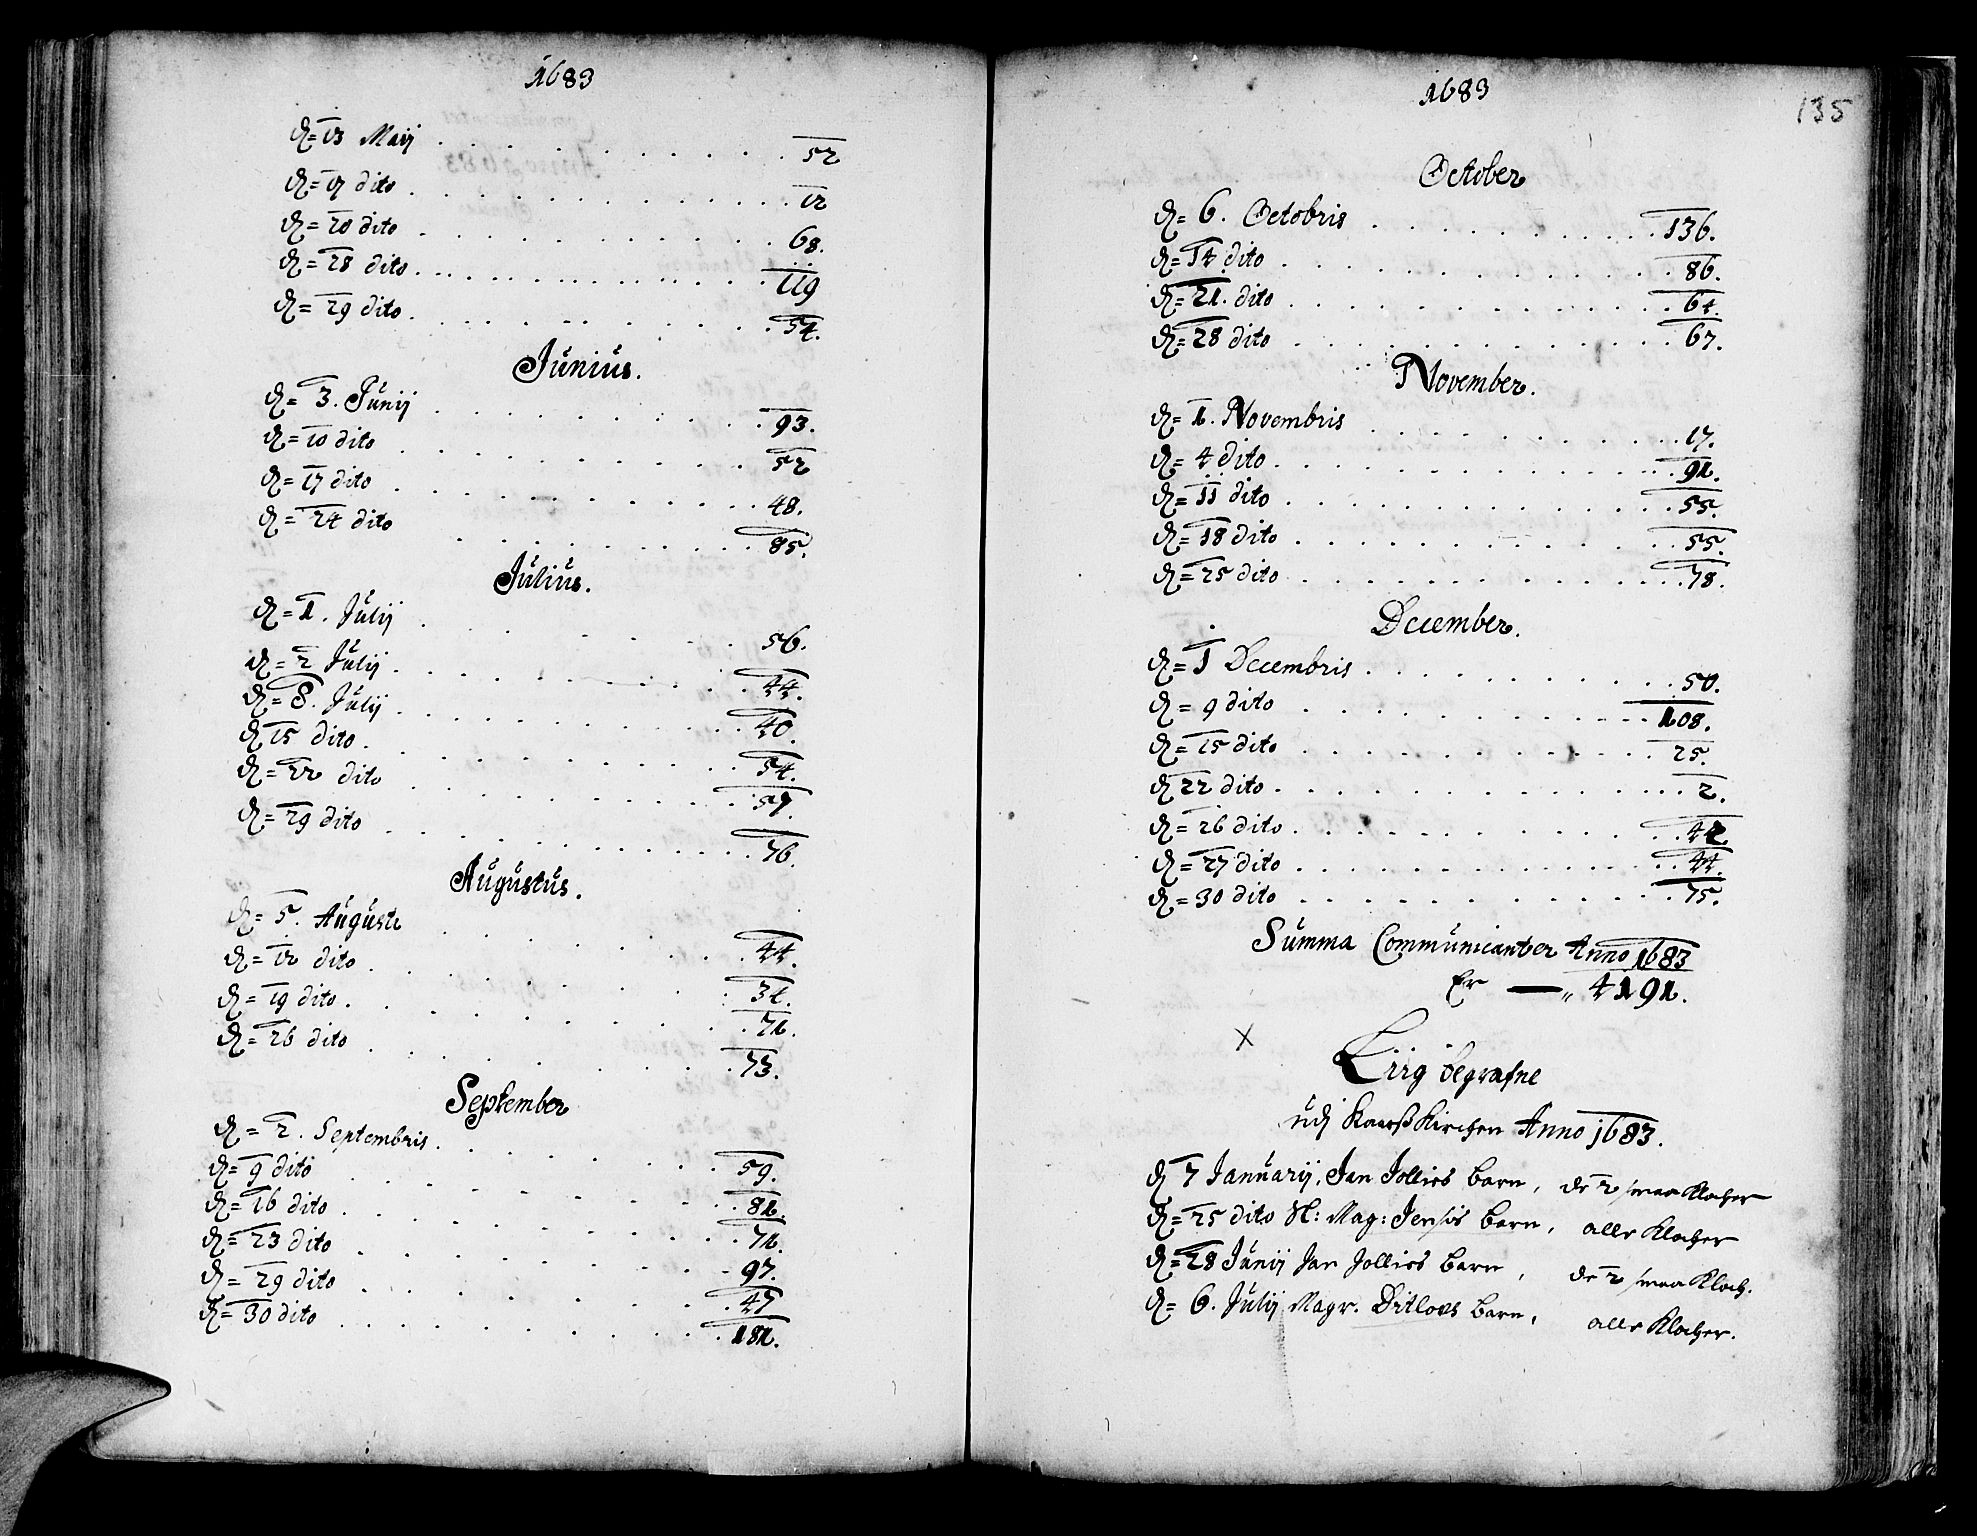 1683
d= 13 Maij . . . . . . . . . . . 52
d= 17 dito . . . . . . . . . . . 12
d= 20 dito . . . . . . . . . . . 68.
d= 28 dito . . . . . . . . . . . 119
d= 29 dito . . . . . . . . . . . 54.
Junius.
d= 3. Junij . . . . . . . . . . . 93.
d= 10 dito . . . . . . . . . . . 52
d= 17 dito . . . . . . . . . . . 48.
d= 24 dito . . . . . . . . . . . 85.
Julius.
d= 1. Julij . . . . . . . . . . . 56.
d= 2 Julij . . . . . . . . . . . 44.
d= 8. Julij . . . . . . . . . . . 40.
d 15 dito . . . . . . . . . . . 54.
d= 22 dito . . . . . . . . . . . 57.
d= 29 dito . . . . . . . . . . . 76.
Augustus.
d= 5. Augusti . . . . . . . . . . . 44.
d= 12 dito . . . . . . . . . . . 34.
d= 19 dito . . . . . . . . . . . 71.
d= 26 dito . . . . . . . . . . . 73.
September
d= 2. Septembris . . . . . . . . . . . 59.
d= 9 dito . . . . . . . . . . . 81.
d= 16 dito . . . . . . . . . . . 71.
d= 23 dito . . . . . . . . . . . 97.
d= 29 dito . . . . . . . . . . . 47
d= 30 dito . . . . . . . . . . . 181.
1683
135
October
d= 6. Octobris . . . . . . . . . . . 136.
d= 14 dito . . . . . . . . . . . 86.
d= 21. dito . . . . . . . . . . . 64.
d= 28 dito . . . . . . . . . . . 67.
November.
d= 1. Novembris . . . . . . . . . . . 17.
d= 4 dito . . . . . . . . . . . 91.
d= 11 dito . . . . . . . . . . . 55.
d= 18 dito . . . . . . . . . . . 55.
d= 25 dito . . . . . . . . . . . 78.
December.
d= 1 Decembris . . . . . . . . . . . 50.
d= 9 dito . . . . . . . . . . . 108.
d= 15 dito . . . . . . . . . . . 25.
d 22 dito . . . . . . . . . . . 2.
d= 26 dito . . . . . . . . . . . 42
d= 27 dito . . . . . . . . . . . 44.
d= 30 dito . . . . . . . . . . . 75.
Summa Communicanter Anno 1683
Er — „ 4191.
X
Liig begrafne
udj Kaarß Kirchen Anno 1683.
d 7 Januarij, Jan Jollies barn, de 2 smaa Klocher
d= 25 dito H: Mag: Jensøs barn, alle Klocher
d= 28 Junij Jan Jollies barn, de 2 smaa Kloch.
d= 6. Julij Magr. Ditloes barn, alle Klocher.